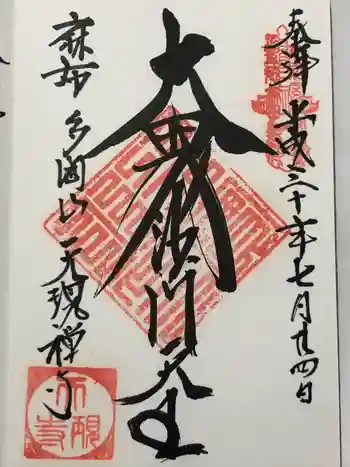 奉拝 平成三十年七月廿四日
大毘沙門天王
麻布 多聞山 天現禅寺
天現寺